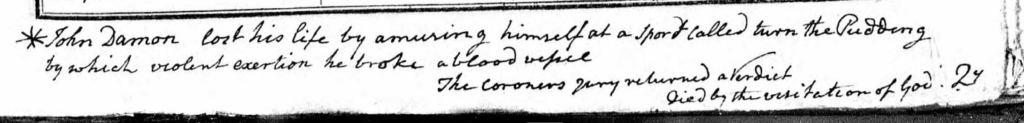 *John Damon lost his life by amusing himself at a sport called turn the Pudding
by which violent exertion he broke a blood vessel
The coroners jury returned a Verdict
Died by the visitation of God. Qy